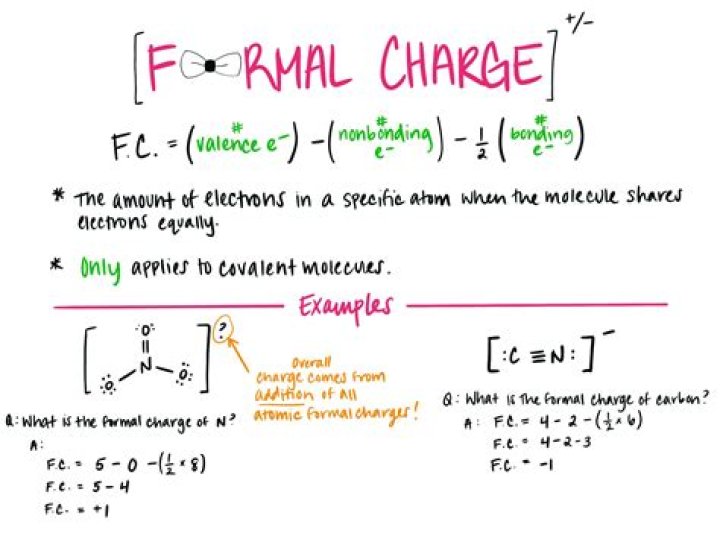 [FORMAL CHARGE]+/-
F.C. = (# valence e-) - (# nonbonding e-) - 1/2 (# bonding e-)
* The amount of electrons in a specific atom when the molecule shares
electrons equally.
* Only applies to covalent molecules.
Examples
[:O: || N :O: :O:]?
Overall
charge comes from
addition of all
atomic formal charges!
Q: What is the formal charge of N?
A:
F.C. = 5 - 0 - (1/2 × 8)
F.C. = 5 - 4
F.C. = +1
[:C ≡ N:]-
Q: What is the formal charge of carbon?
A: F.C. = 4 - 2 - (1/2 × 6)
F.C. = 4 - 2 - 3
F.C. = -1